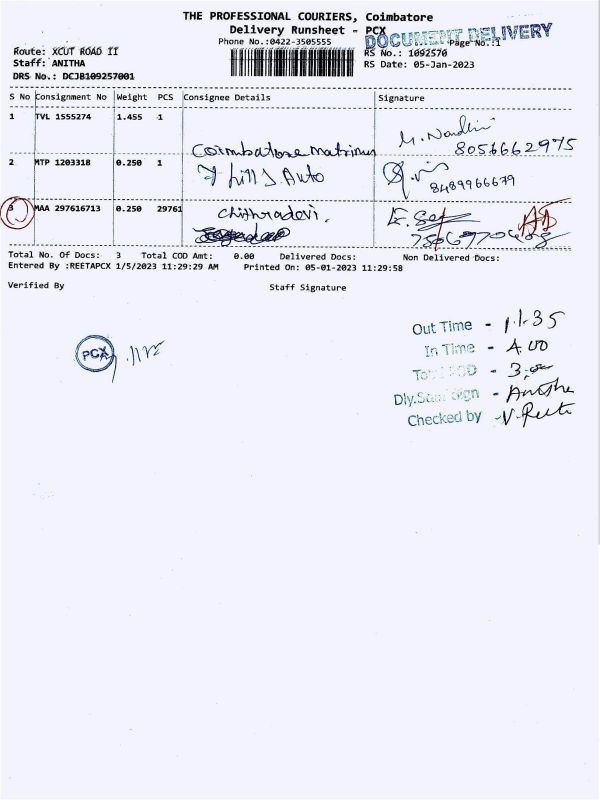 THE PROFESSIONAL COURIERS, Coimbatore
Delivery Runsheet - PCX
Phone No.:0422-3505555
DOCUMENT DELIVERY
Page No.:1
Route: XCUT ROAD II
RS No.: 1092570
Staff: ANITHA
RS Date: 05-Jan-2023
DRS No.: DCJB109257001
S No Consignment No Weight PCS Consignee Details Signature
1 TVL 1555274 1.455 1
Coimbatore Matrimony M. Nandini
8056662975
2 MTP 1203318 0.250 1
7 hills Auto
8489966679
3 MAA 297616713 0.250 29761
Chithradevi.
Total No. Of Docs: 3 Total COD Amt: 0.00 Delivered Docs: Non Delivered Docs:
Entered By :REETAPCX 1/5/2023 11:29:29 AM Printed On: 05-01-2023 11:29:58
Verified By Staff Signature
PCX
Out Time - 11.35
In Time - 4.00
- 3.00
Dly.Staff Sign - Anitha
Checked by